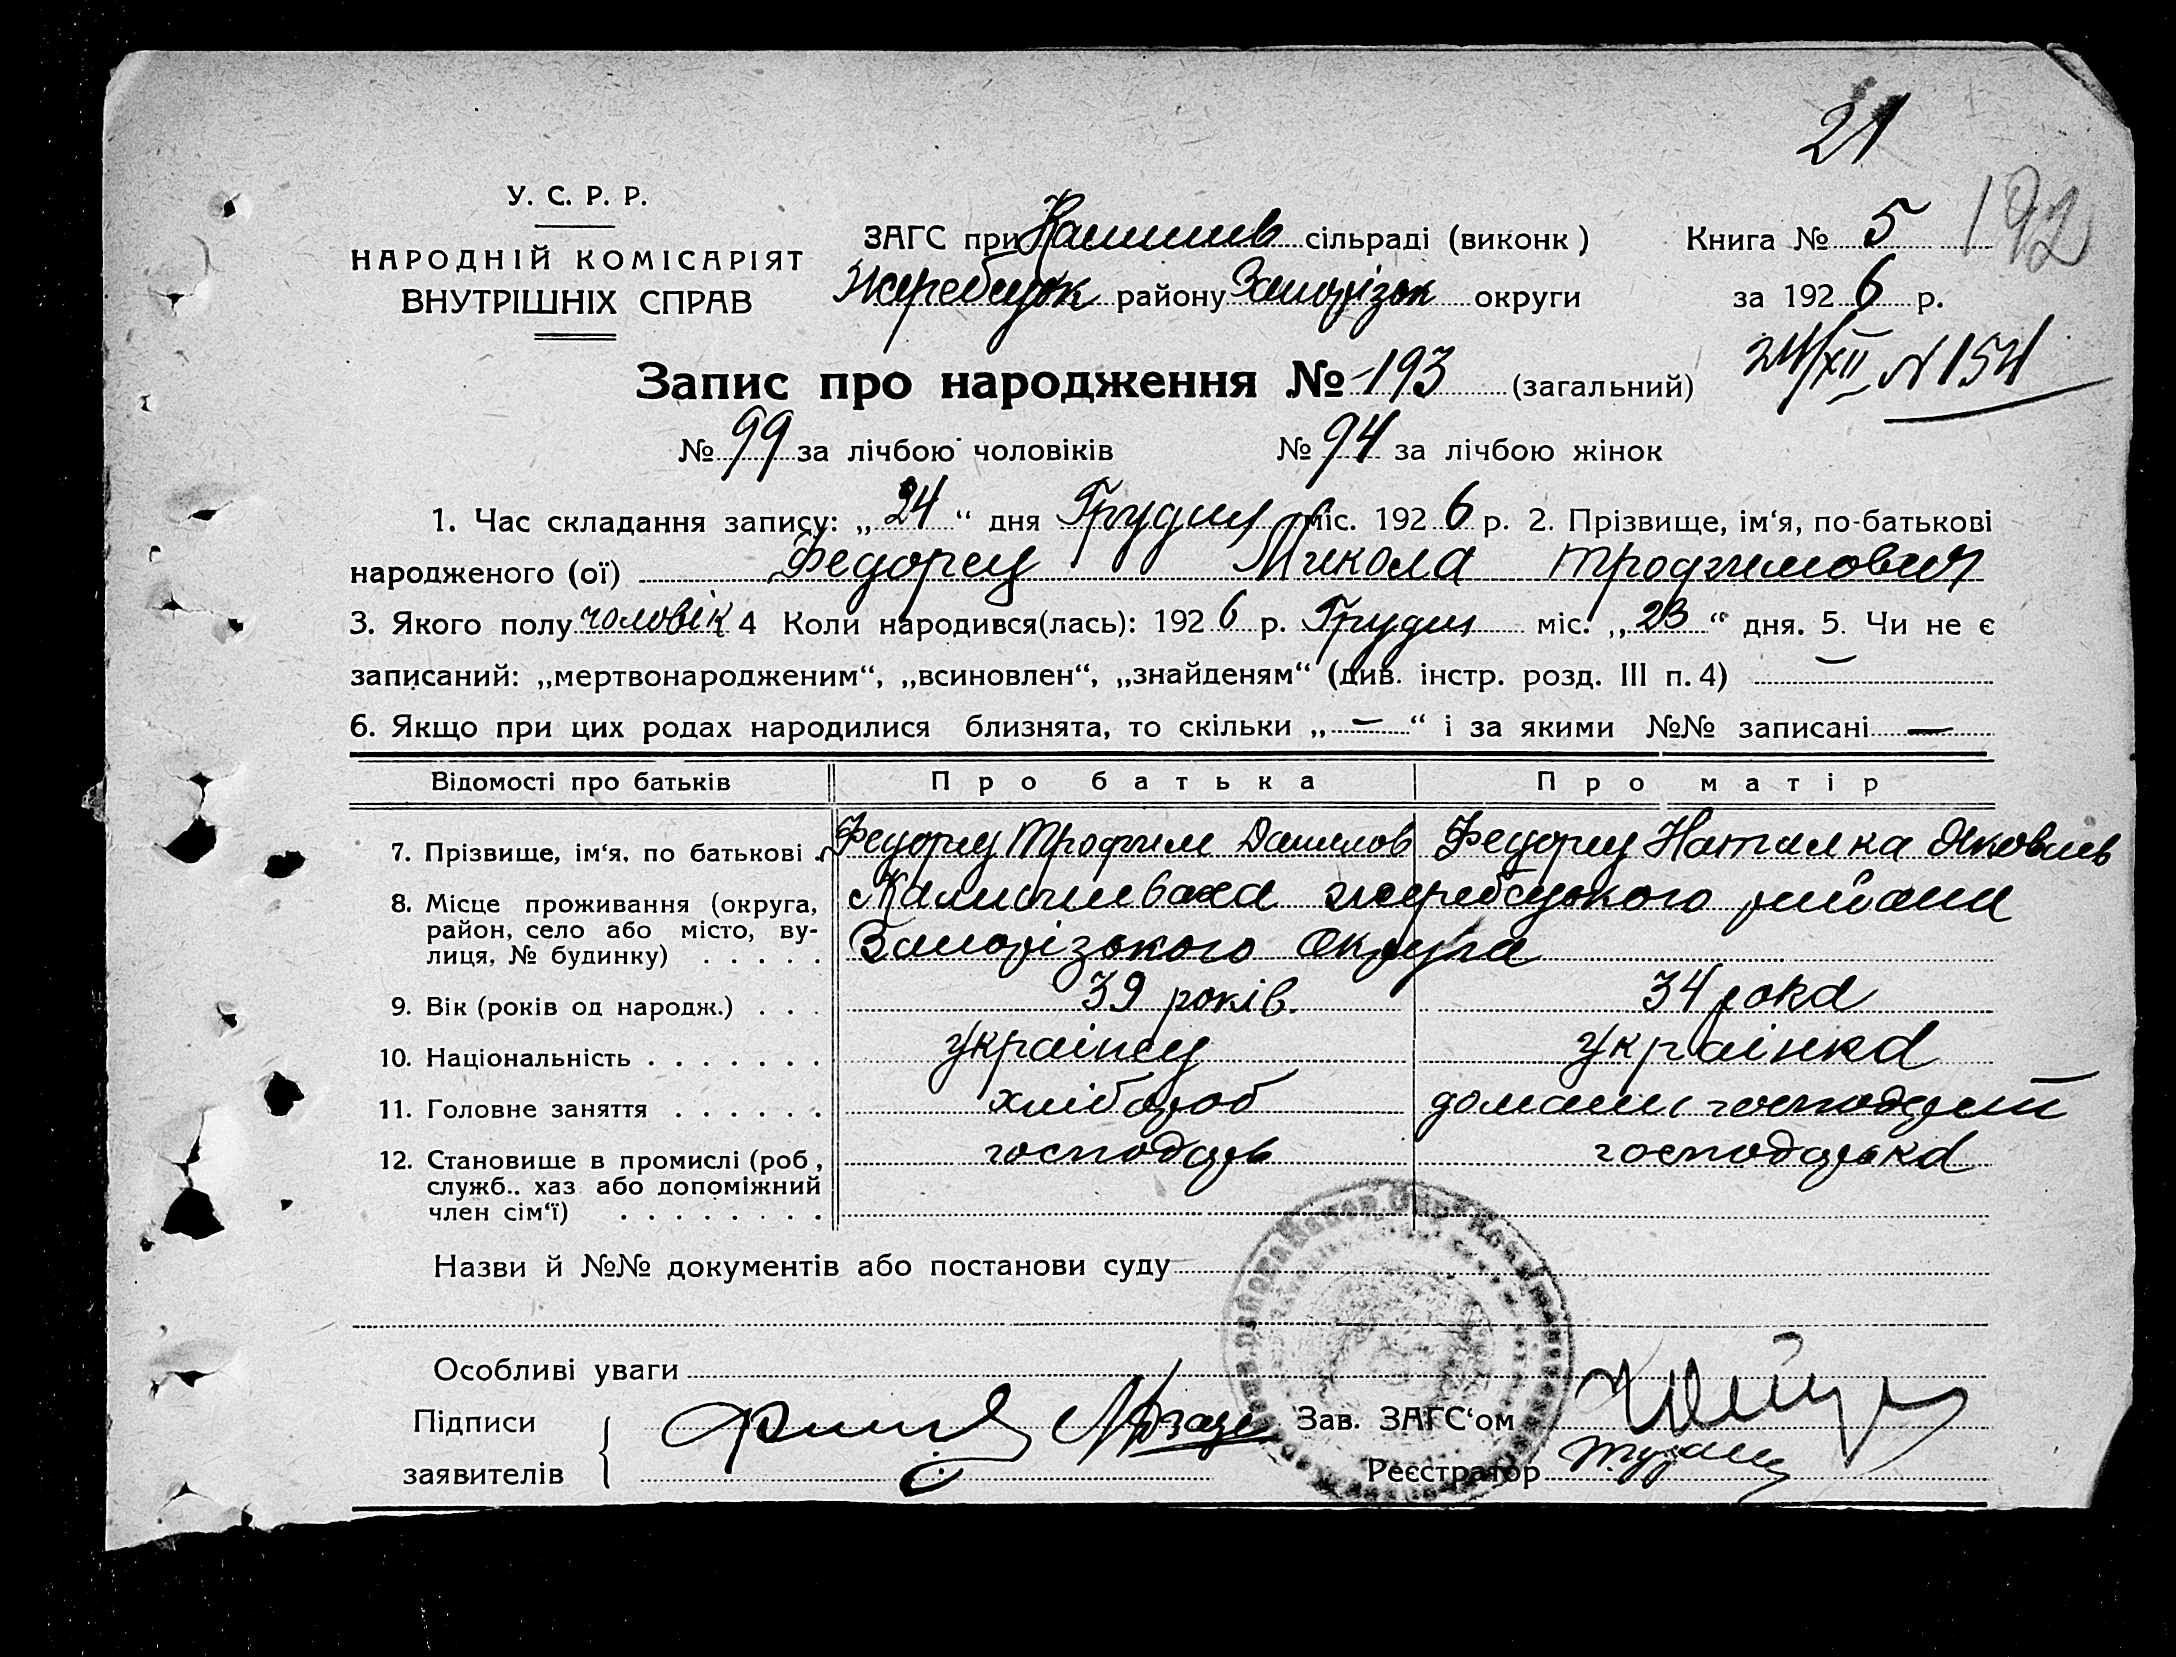 21
У. С. Р. Р.
НАРОДНІЙ КОМІСАРІЯТ
ВНУТРІШНІХ СПРАВ
ЗАГС при Камишев сільраді (виконк)
Жеребцюк району Запорізьк округи
Книга № 5 192
за 1926 р.
24/XII N 154
Запис про народження № 193 (загальний)
№ 99 за лічбою чоловіків № 94 за лічбою жінок
1. Час складання запису: „24“ дня Грудня міс. 1926 р. 2. Прізвище, ім‘я, по-батькові
народженого (ої) Федорец Микола Трофимович
3. Якого полу чоловік 4 Коли народився(лась): 1926 р. Грудня міс. „23“ дня. 5. Чи не є
записаний: „мертвонародженим“, „всиновлен“, „знайденям“ (див. інстр. розд. III п. 4) —
6. Якщо при цих родах народилися близнята, то скільки „—“ і за якими №№ записані —
Відомості про батьків Про батька Про матір
7. Прізвище, ім‘я, по батькові Федорец Трофим Данилов Федорец Наталка Яковлев
8. Місце проживання (округа, район, село або місто, вулиця, № будинку) Камишеваха
Запорізького Округа
9. Вік (років од народж.) 39 років. 34 рока
10. Національність українец українка
11. Головне заняття хлібороб
12. Становище в промислі (роб, служб.. хаз або допоміжний член сім‘ї) господарь господарька
Назви й №№ документів або постанови суду
Особливі уваги
Підписи
заявителів
Зав. ЗАГС‘ом
Реєстратор